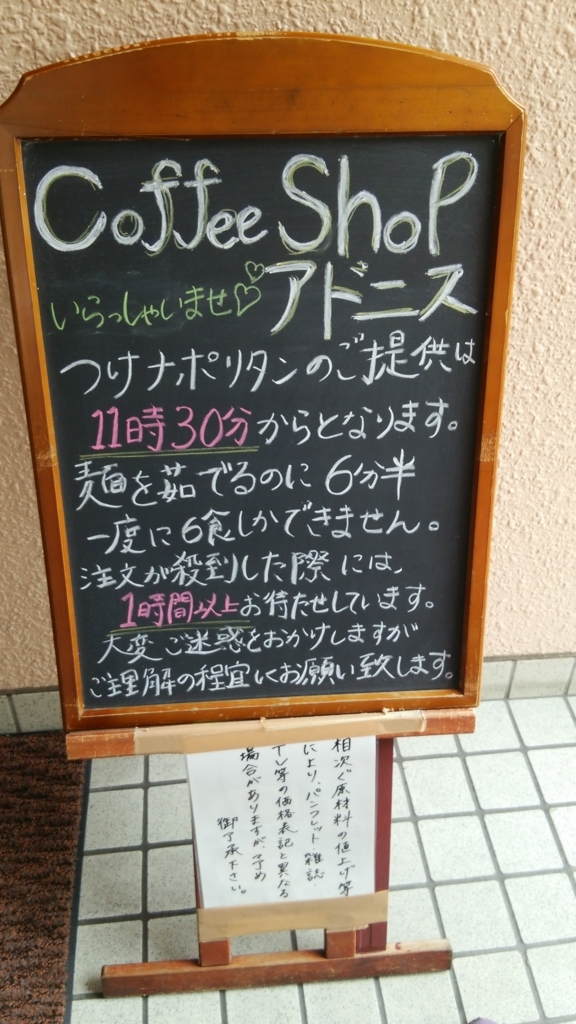 Coffee ShoP
アドニス
いらっしゃいませ♡♡
つけナポリタンのご提供は
11時30分からとなります。
麺を茹でるのに6分半
一度に6食しかできません。
注文が殺到した際には、
1時間以上お待たせしています。
大変ご迷惑をおかけしますが
ご理解の程宜しくお願い致します。
相次ぐ原材料の値上げ等
により、パンフレット 雑誌
TV等の価格表記と異なる
場合がありますが、予め
御了承下さい。